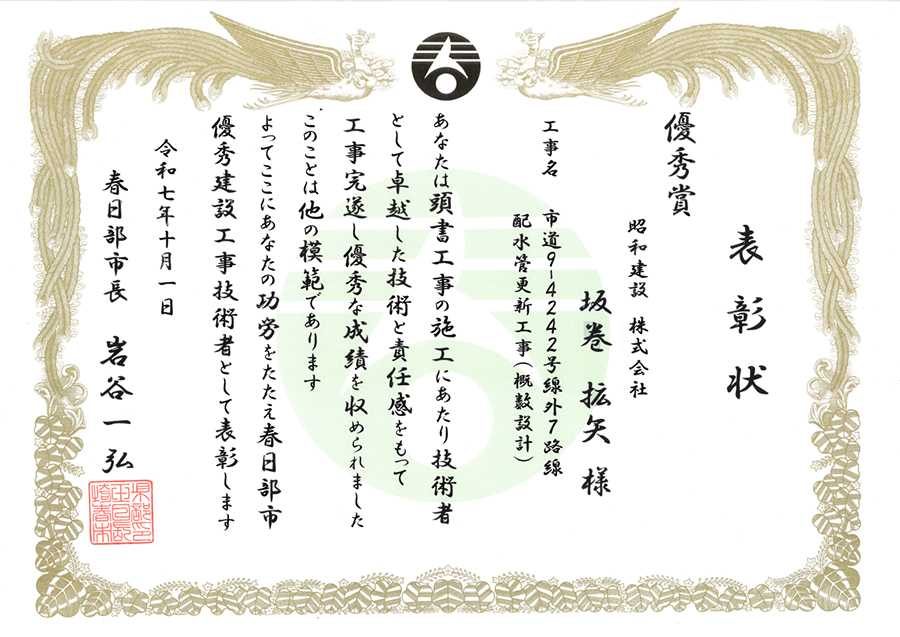 表彰状
優秀賞
昭和建設 株式会社
坂巻 拡矢 様
工事名 市道9-4242号線外7路線
配水管更新工事(概数設計)
あなたは頭書工事の施工にあたり技術者
として卓越した技術と責任感をもって
工事完遂し優秀な成績を収められました
このことは他の模範であります
よってここにあなたの功労をたたえ春日部市
優秀建設工事技術者として表彰します
令和七年十月一日
春日部市長 岩谷一弘